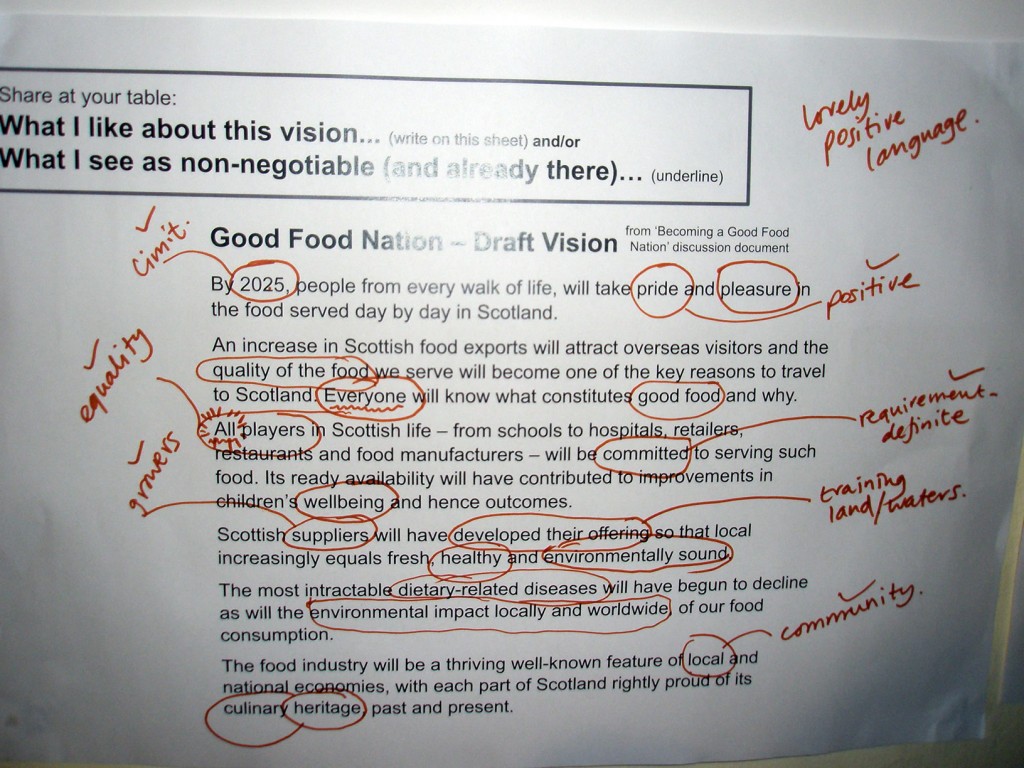 Share at your table:
What I like about this vision... (write on this sheet) and/or
What I see as non-negotiable (and already there)... (underline)
lovely
positive
language.
Good Food Nation – Draft Vision
from 'Becoming a Good Food
Nation' discussion document
limit.
By 2025, people from every walk of life, will take pride and pleasure in
the food served day by day in Scotland.
positive
An increase in Scottish food exports will attract overseas visitors and the
quality of the food we serve will become one of the key reasons to travel
to Scotland. Everyone will know what constitutes good food and why.
equality
requirement-
definite
All players in Scottish life – from schools to hospitals, retailers,
restaurants and food manufacturers – will be committed to serving such
food. Its ready availability will have contributed to improvements in
children's wellbeing and hence outcomes.
growers
training
land/waters.
Scottish suppliers will have developed their offering so that local
increasingly equals fresh, healthy and environmentally sound.
The most intractable dietary-related diseases will have begun to decline
as will the environmental impact locally and worldwide, of our food
consumption.
community.
The food industry will be a thriving well-known feature of local and
national economies, with each part of Scotland rightly proud of its
culinary heritage, past and present.